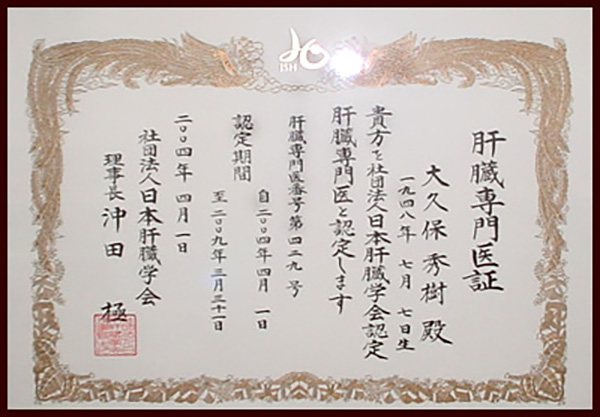 JSH
肝臓専門医証
大久保秀樹 殿
一九四八年 七月 七日生
貴方を社団法人日本肝臓学会認定
肝臓専門医と認定します
肝臓専門医番号第四二九号
認定期間
自 二〇〇四年 四月 一日
至 二〇〇九年 三月三十一日
二〇〇四年 四月一日
社団法人日本肝臓学会
理事長 沖田 極